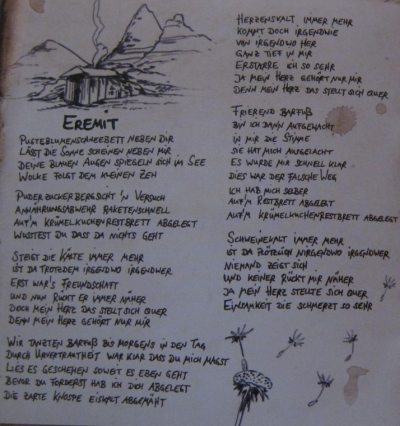 EREMIT
PUSTEBLUMENSCHNEEBETT NEBEN DIR
LÄSST DIE SONNE SCHEINEN NEBEN MIR
DEINE BLAUEN AUGEN SPIEGELN SICH IM SEE
WOLKE FOLGT DEM KLEINEN ZEH
PUDERZUCKERBERGSICHT 'N VERSUCH
ANNÄHRUNGSABWEHR RAKETENSCHNELL
AUF'M KRÜMELKUCHENRESTBRETT ABGELEGT
WUSSTEST DU DASS DA NICHTS GEHT
STEIGT DIE KÄLTE IMMER MEHR
IST DA TROTZDEM IRGENDWO IRGENDWER
ERST WAR'S FREUNDSCHAFT
UND NUN RÜCKT ER IMMER NÄHER
DOCH MEIN HERZ DAS STELLT SICH QUER
DENN MEIN HERZ GEHÖRT NUR MIR
WIR TANZTEN BARFUß BIS MORGENS IN DEN TAG
DURCH URVERTRAUTHEIT WAR KLAR DASS DU MICH MAGST
LIES ES GESCHEHEN SOWEIT ES EBEN GEHT
BEVOR DU FORDERST HAB ICH DICH ABGELEGT
DIE ZARTE KNOSPE EISKALT ABGEMÄHT
HERZENSKALT IMMER MEHR
KOMMT DOCH IRGENDWIE
VON IRGENDWO HER
GANZ TIEF IN MIR
ERSTARRE ICH SO SEHR
JA MEIN HERZ GEHÖRT NUR MIR
DENN MEIN HERZ DAS STELLT SICH QUER
FRIEREND BARFUß
BIN ICH DANN AUFGEWACHT
IN MIR DIE STIMME
SIE HAT MICH AUSGELACHT
ES WURDE MIR SCHNELL KLAR
DIES WAR DER FALSCHE WEG
ICH HAB MICH SELBER
AUF'M RESTBRETT ABGELEGT
AUF'M KRÜMELKUCHENRESTBRETT ABGELEGT
SCHWEINEKALT IMMER MEHR
IST DA PLÖTZLICH NIRGENDWO IRGENDWER
NIEMAND ZEIGT SICH
UND KEINER RÜCKT MIR NÄHER
JA MEIN HERZ STELLTE SICH QUER
EINSAMKEIT DIE SCHMERZT SO SEHR